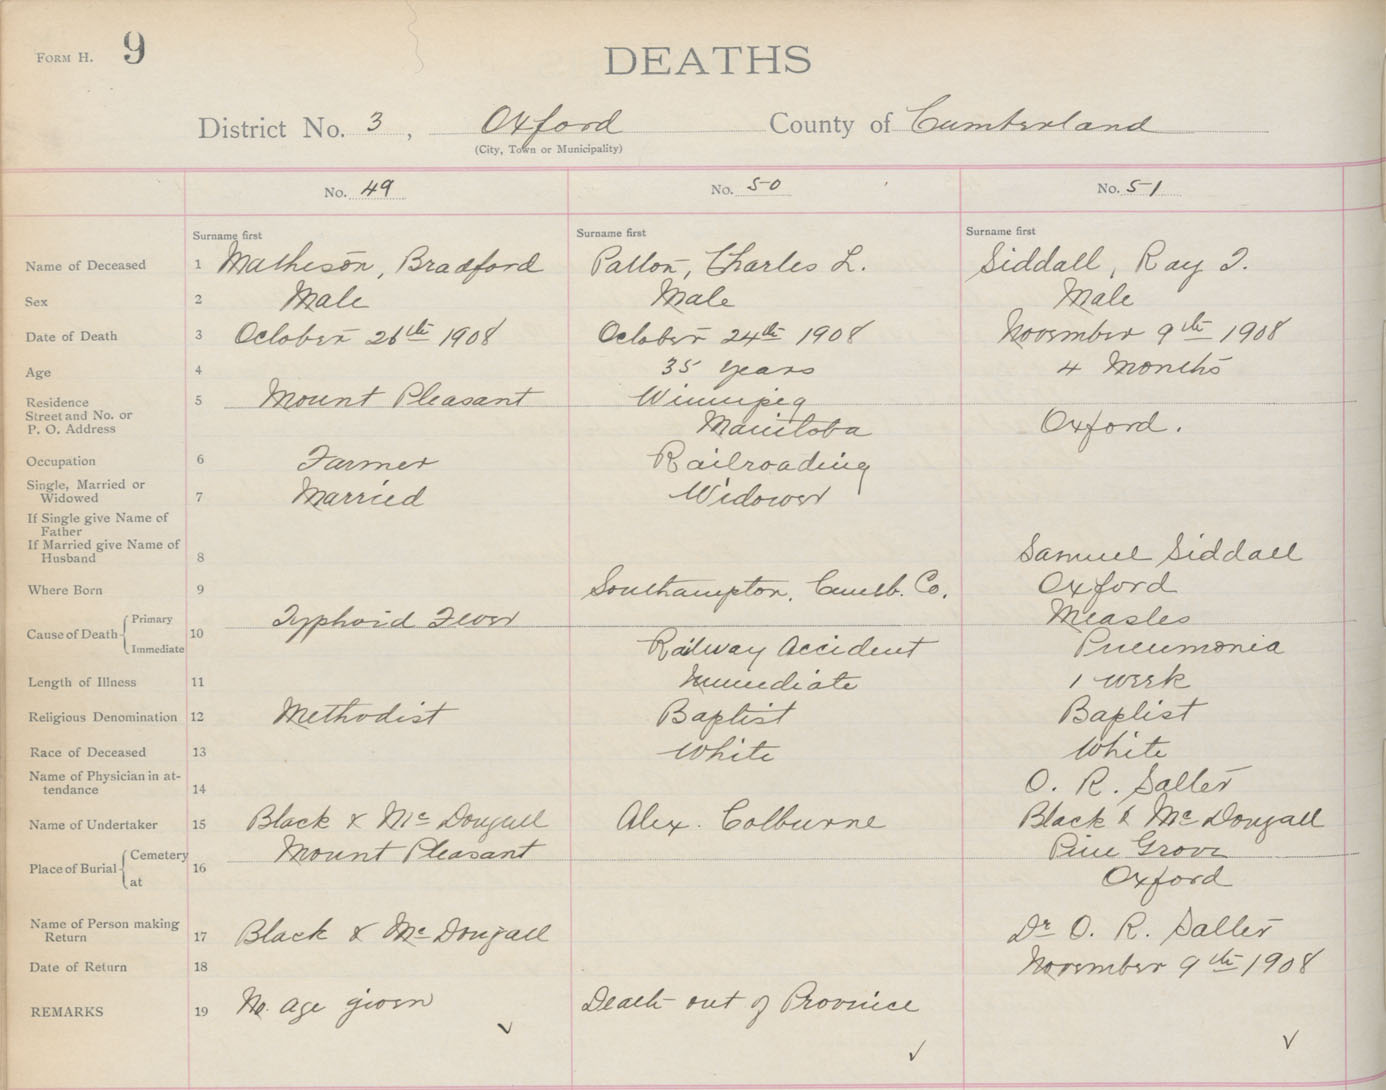 FORM H. 9
DEATHS
District No. 3, Oxford County of Cumberland
(City, Town or Municipality)
No. 49 No. 50 No. 51
Surname first Surname first Surname first
Name of Deceased 1 Matheson, Bradford Patton, Charles L. Siddall, Ray I.
Sex 2 Male Male Male
Date of Death 3 October 26th 1908 October 24th 1908 November 9th 1908
Age 4 35 years 4 Months
Residence 5 Mount Pleasant Winnipeg
Street and No. or
P. O. Address Manitoba Oxford.
Occupation 6 Farmer Railroading
Single, Married or
Widowed 7 Married Widower
If Single give Name of
Father
If Married give Name of
Husband 8 Samuel Siddall
Where Born 9 Southampton, Cumb. Co. Oxford
Cause of Death Primary 10 Typhoid Fever Measles
Immediate Railway Accident Pneumonia
Length of Illness 11 Immediate 1 week
Religious Denomination 12 Methodist Baptist Baptist
Race of Deceased 13 White White
Name of Physician in at-
tendance 14 O. R. Salter
Name of Undertaker 15 Black & Mc Dougall Alex. Colburne Black & Mc Dougall
Place of Burial Cemetery 16 Mount Pleasant Pine Grove
at Oxford
Name of Person making
Return 17 Black & Mc Dougall Dr O. R. Salter
Date of Return 18 November 9th 1908
REMARKS 19 No age given Death out of Province